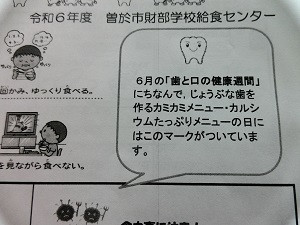 令和６年度　曽於市財部学校給食センター
６月の「歯と口の健康週間」
にちなんで、じょうぶな歯を
作るカミカミメニュー・カルシ
ウムたっぷりメニューの日に
はこのマークがついていま
す。
かみ、ゆっくり食べる。
を見ながら食べない。